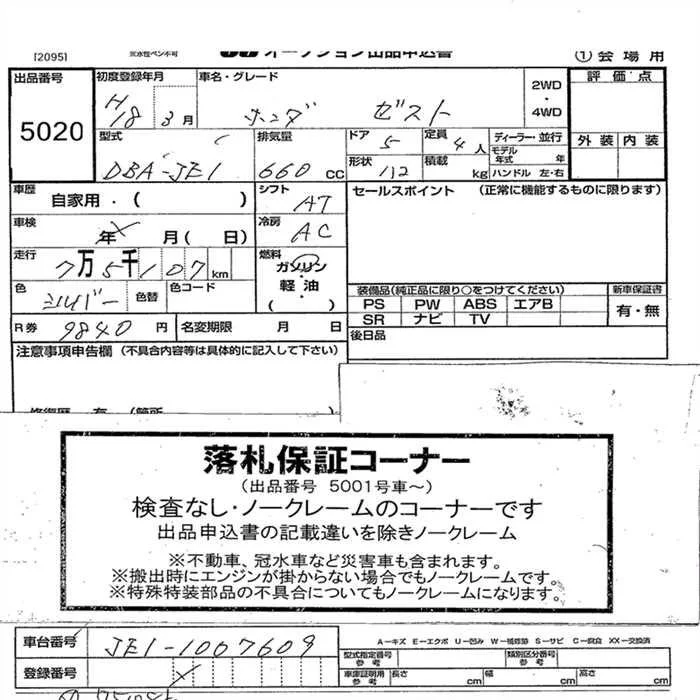 [2095] 水性ペン不可 オークション出品申込書 ①会場用
出品番号 初度登録年月 車名・グレード 2WD・4WD 評価点
5020 H18 3月 ホンダ ゼスト
型式 排気量 ドア 定員 ディーラー・並行 外装 内装
DBA-JE1 660cc 5 4人 モデル年式 年
形状 112 積載 kg ハンドル 左・右
車歴 自家用・( ) シフト AT セールスポイント (正常に機能するものに限ります)
車検 年 月( 日) 冷房 AC
走行 7万5千107km 燃料 ガソリン・軽油・( )
色 シルバー 色替 色コード
装備品(純正品に限り○をつけてください) 新車保証書
PS PW ABS エアB 有・無
SR ナビ TV
R券 9840円 名変期限 月 日 後日品
注意事項申告欄 (不具合内容等は具体的に記入して下さい)
修復歴 有 (箇所
落札保証コーナー
(出品番号 5001号車~)
検査なし・ノークレームのコーナーです
出品申込書の記載違いを除きノークレーム
※不動車、冠水車など災害車も含まれます。
※搬出時にエンジンが掛からない場合でもノークレームです。
※特殊特装部品の不具合についてもノークレームになります。
車台番号 JE1-1007609 A-キズ E-エクボ U-凹み W-補修跡 S-サビ C-腐食 XX-交換済
型式指定番号 参考 類別区分番号 参考
登録番号 車庫証明用 参考 長さ cm 幅 cm 高さ cm